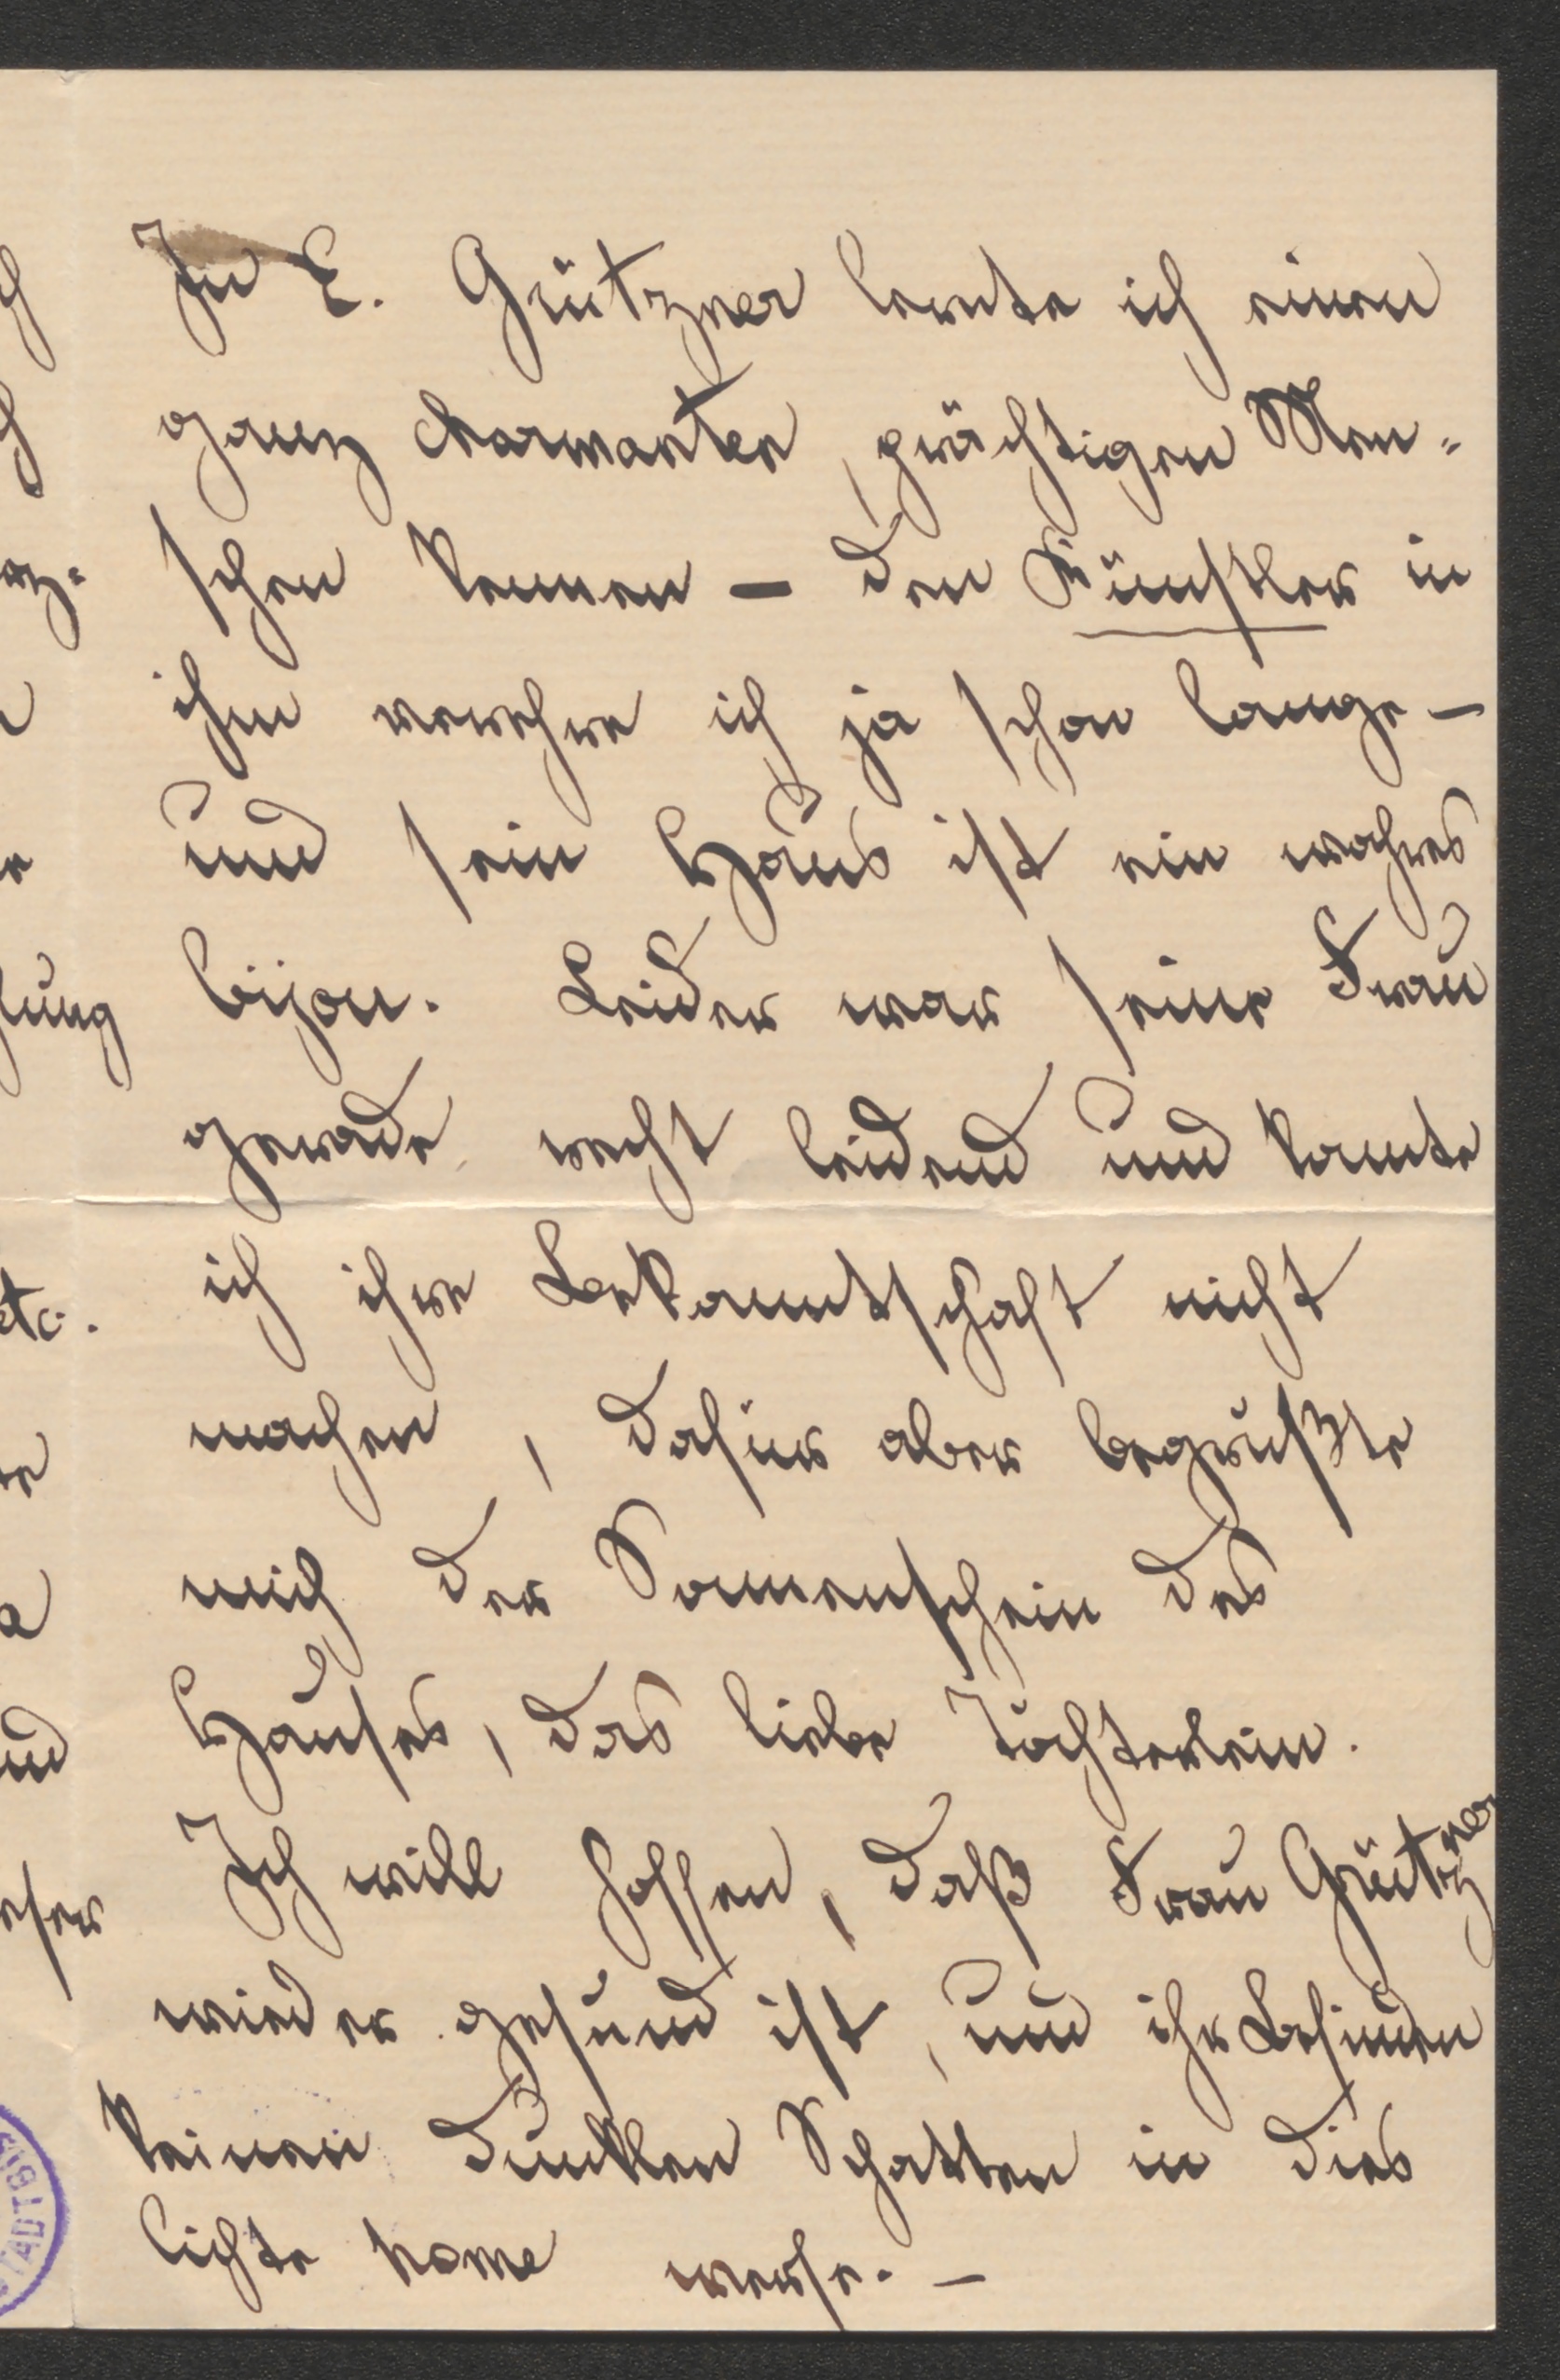 In E. Grützner lernte ich einen
ganz charmanten, prächtigen Men-
schen kennen – den Künstler in
ihm verehre ich ja schon lange –
und sein Haus ist ein wahres
bijou. Leider war seine Frau
gerade recht leidend und konnte
ich ihre Bekanntschaft nicht
machen, dafür aber begrüßte
mich der Sonnenschein des
Hauses, das liebe Töchterlein.
Ich will hoffen, daß Frau Grützner
wieder gesund ist, und ihr Befinden
keinen dunklen Schatten in dies
lichte home werfe. –
etc.